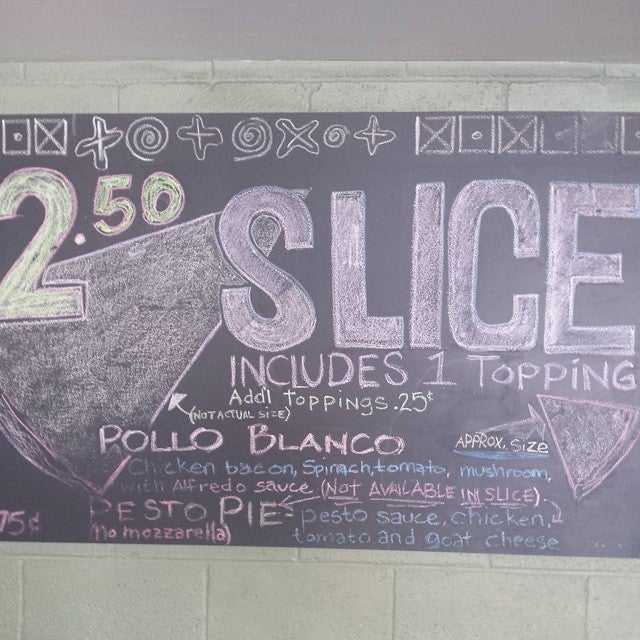 2.50 SLICE
INCLUDES 1 TOPPING
Addl toppings .25¢
(NOT ACTUAL SIZE)
POLLO BLANCO
APPROX. SIZE
Chicken bacon, Spinach, tomato, mushroom,
with Alfredo sauce (NOT AVAILABLE IN SLICE).
75¢ PESTO PIE- pesto sauce, chicken,
(No mozzarella) tomato and goat cheese